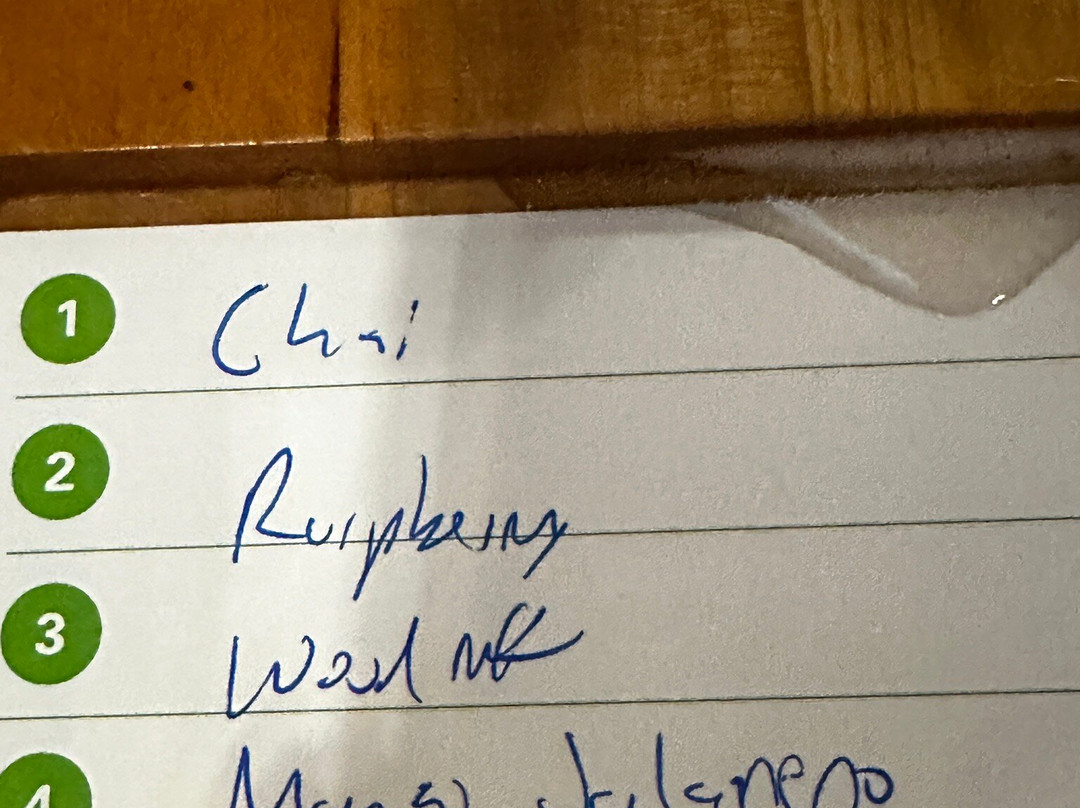 1 Chai
2 Raspberry
3 Woodruff
4 Mango Jalapeno